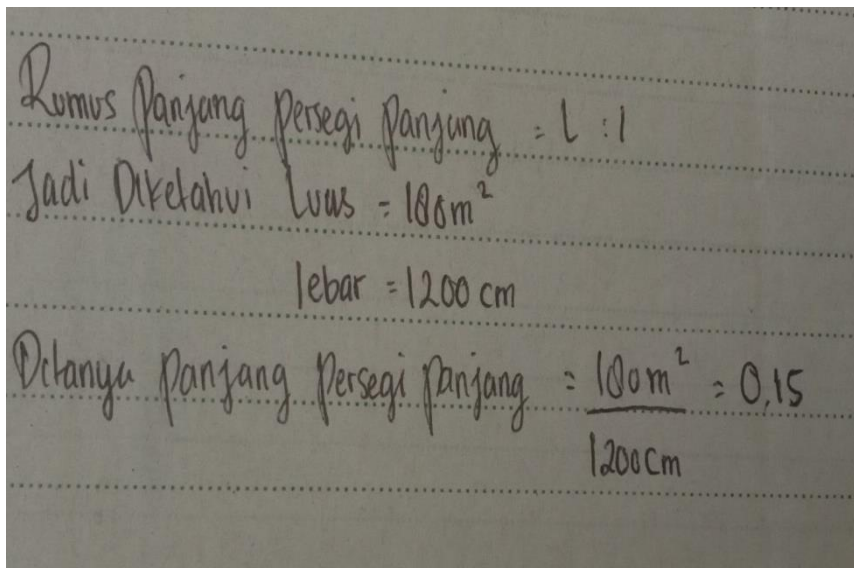 Rumus Panjang Persegi Panjang = L : l
Jadi Diketahui Luas = 180m²
lebar = 1200 cm
Ditanya Panjang Persegi Panjang = 180m² = 0,15
1200cm